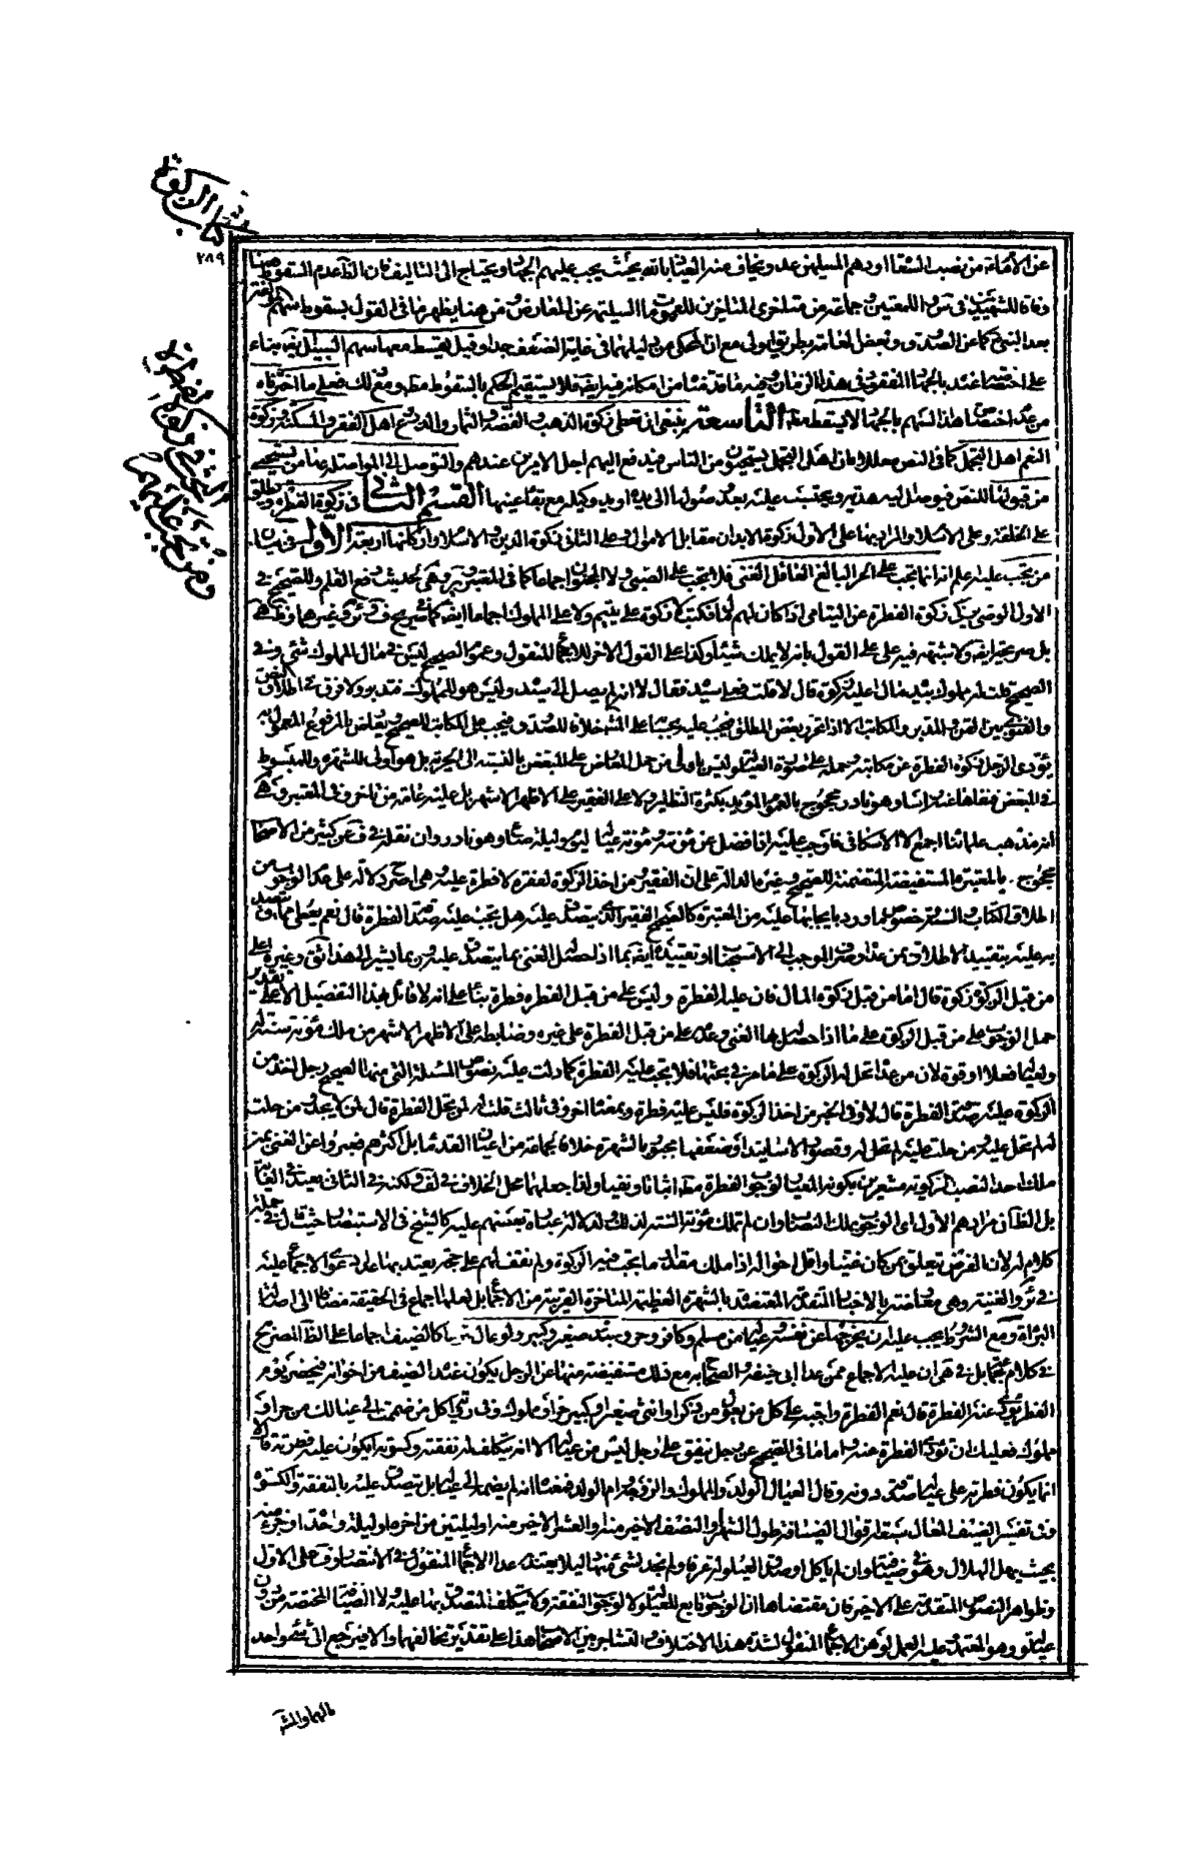 كتاب الزكوة
٢٨٩
عن الأمامة من نصب السقاا ودهم المسلمين عدو يخاف منه العياذ بالله بحيث يجب عليهم الجهاد ويحتاج الى التاليف فان الظ عدم السقوط هنا
وفاقا للشهيدين في س والمعتبر وجماعة من متاخري المتاخرين للعموم السليمة عن المعارض ومن هنا يظهر ما في القول بسقوط سهم
بعد النبي كما عن الصدوق وبعض العامة بطريق اولى مع ان المحكى من دليلهما في غاية الضعف جدا وقيل يسقط معهما سهم السبيل ايضا بناء
على اختصاصه بالجهاد المفقود في هذا الزمان وفيه ما قدمناه من امكانه فيه ايضا فلا يستقيم الحكم بالسقوط مطلقا ومع ذلك فعلى ما اخترناه
من عدم اختصاص هذا السهم بالجهاد لا يسقط مطلقا التاسعة ينبغي ان تعطى زكوة الذهب والفضة والثمار والزرع اهل الفقر والمسكنة وزكوة
النعم اهل التجمل كما في النص معللا بان اهل التجمل يستحيون من الناس فيدفع اليهم اجمل الامرين عندهم والتوصل الى المواصلة بها من يستحيى
من قبولها للنص فيوصل اليه هدية ويحتسب عليه بعد وصولها الى يده او يد وكيله مع بقاء عينها القسم الثاني في زكوة الفطرة ويطلق
على الخلقة وعلى الاسلام والمراد بها على الاول زكوة الابدان مقابل الاموال وعلى الثاني زكوة الدين والاسلام واركانها اربعة الاول في بيان
من يجب عليه اعلم انه انما تجب على الحر البالغ العاقل الغنى فلا تجب على الصبى ولا المجنون اجماعا كما في المعتبر وهى لحديث رفع القلم وللصحيح في
الاول الوصي يزكى زكوة الفطرة عن اليتامى اذا كان لهم مال فكتب لا زكوة على يتيم ولا على المملوك اجماعا ايضا كما صرح به في وغيرهما وهى
بل صرح غيره ايضا ولا شبهة فيه على القول بانه لا يملك شيئا وكذا على القول الاخر للاجماع المنقول وعموم الصحيح ليس في مال المملوك شئ وفي
الصحيح قلت له مملوك بيده مال اعليه زكوة قال لا قلت فعلى سيده فقال لا انه لم يصل الى سيده وليس هو للمملوك فتدبر ولا فرق في اطلاق النص
والفتوى بين القن والمدبر والمكاتب الا اذا تحرر بعض المطلق فتجب عليه بحسابه على المش خلافا للصدوق فتجب على المكاتب للصحيح ويعارض بالمرفوع المعمول به
يؤدى الرجل زكوة الفطرة عن مكاتبه وحمله على صورة العيلولة ليس باولى من حمل المعارض على المبعض بالنسبة الى الحرية بل هو اولى للشهرة وللمبسوط
في المبعض فنفاها عنه راسا وهو نادر محجوج بالعموم المؤيد بكثرة النظاير ولا على الفقير على الاظهر الاشهر بل عليه عامة من تاخر وفي المعتبر وهى
انه مذهب علمائنا اجمع الا الاسكافي فاوجب عليه اذا فضل عن مؤنته ومؤنة عياله ليومه وليلته صاع وهو نادر وان نقله في ف عن كثير من الاصحاب
محجوج بالمعتبرة المستفيضة المتضمنة للصحيح وغيره الدالة على ان الفقير ومن اخذ الزكوة لفقره لا فطرة عليه وهى اصرح دلالة على عدم الوجوب من
اطلاق الكتاب والسنة وخصوص ما ورد بايجابها عليه من المعتبرة كالصحيح الفقير الذي يتصدق عليه هل يجب عليه صدقة الفطرة قال نعم يعطى مما يتصدق
به عليه بتقييد الاطلاق بمن عداه وصرف الموجب الى الاستحباب او تقييده ايضا بما اذا حصل له الغنى بما يتصدق عليه وربما يشير الى هذا موثق وغيره اعلى
من قبل الزكوة زكوة قال اما من قبل زكوة المال فان عليه الفطرة وليس على من قبل الفطرة فطرة بناء على انه لا قائل بهذا التفصيل الا على تقدير
حمل الوجوب على من قبل الزكوة على ما اذا حصل له بها الغنى وعدمه على من قبل الفطرة على غيره وضابطه على الاظهر الاشهر من ملك مؤنة سنته له
ولعياله فعلا او قوة لان من عداه تحل له الزكوة على ما مر في بحثها فلا تجب عليه الفطرة كما دلت عليه نصوص المسئلة التي منها الصحيح رجل اخذ من
الزكوة عليه صدقة الفطرة قال لا وفي الخبر من اخذ الزكوة فليس عليه فطرة وبمعناه اخر وفي ثالث قلت له لمن تحل الفطرة قال لمن لا يجد ومن حلت
له لم تحل عليه ومن حلت عليه لم تحل له وقصور الاسانيد او ضعفها مجبور بالشهرة خلافا لجماعة من اعيان القدماء بل اكثرهم فعبروا عن الغنى بمن
ملك احد النصب الزكوية مشعرين بكونه المعيار لوجوب الفطرة مطلقا اثباتا ونفيا ولذا جعلهما محل الخلاف في لف ولكنه في الثاني بعيد في الغاية
بل الظ ان مرادهم الاول اى الوجوب بملك النصاب وان لم تملك مؤنة السنة لذلك ولدلالة عبارة بعضهم عليه كالشيخ في الاستبصار حيث قال في جملة
كلام له لان الفرض يتعلق بمن كان غنيا واقل احواله اذا ملك مقدار ما تجب فيه الزكوة ولم نقف لهم على حجة يعتد بها عدا دعوى الاجماع عليه
في ئر والغنية وهى معارضة بالاخبار المتقدمة المعتضدة بالشهرة العظيمة المتاخرة القريبة من الاجماع بل لعلها اجماع في الحقيقة مضافا الى اصالة
البراءة ومع الشروط يجب عليه ان يخرجها عن نفسه وعياله من مسلم وكافر وحر وعبد صغير وكبير ولو عال تبرعا كالضيف اجماعا على الظ المصرح
في كلام جماعة بل في هى ان عليه الاجماع ممن عدا ابى حنيفة والصحاح به مع ذلك مستفيضة منها عن الرجل يكون عنده الضيف من اخوانه فيحضر يوم
الفطر يؤدى عنه الفطرة قال نعم الفطرة واجبة على كل من يعول من ذكر او انثى صغير او كبير حر او مملوك وفي رجل كل من ضممت الى عيالك من حر او
مملوك فعليك ان تؤدى الفطرة عنه واما ما في الصحيح عن رجل ينفق على رجل ليس من عياله الا انه يتكلف له نفقته وكسوته ايكون عليه فطرته قال لا
انما يكون فطرته على عياله صدقة دونه وقال العيال الولد والمملوك والزوجة وام الولد فمعناه انه لم يضمه الى عياله بل تصدق عليه بالنفقة والكسوة
وفي تفسير الضيف المعال سبعة اقوال الضيافة طول الشهر والنصف الاخير منه والعشر الاخير منه او ليلتين من اخره او ليلة واحدة او جزء منه
بحيث يهل الهلال وهو في ضيافته وان لم ياكل او صدق العيلولة عرفا ولم نجد لشئ منها دليلا يعتد به عدا الاجماع المنقول في الانتصار وف على الاول
وظواهر النصوص المتقدمة على الاخير فان مقتضاها ان الوجوب تابع للعيلولة لا لوجوب النفقة ولا تكلف التصدق بها عليه ولا الضيافة المختصة من دون
عيلولة وهو المعتمد عليه العمل لوهن الاجماع المنقول لشدة هذا الاختلاف والتشاجر بين الاصحاب هذا على تقدير مخالفتهما والا فيرجع الى شئ واحد
بالهما والمش
الثاني في زكوة الفطرة
ومن تجب عليهم